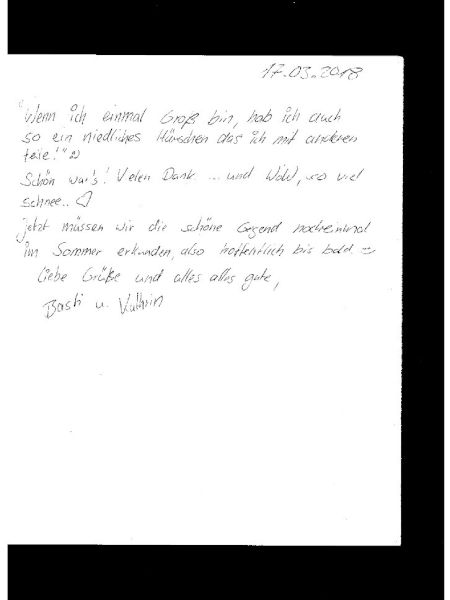 17.03.2018
"Wenn ich einmal Groß bin, hab ich auch
so ein niedliches Häuschen das ich mit anderen
teile!"
Schön war's! Vielen Dank ... und WOW, so viel
Schnee.. ♡
jetzt müssen wir die schöne Gegend nocheinmal
im Sommer erkunden, also hoffentlich bis bald
Liebe Grüße und alles alles gute,
Basti u. Kathrin